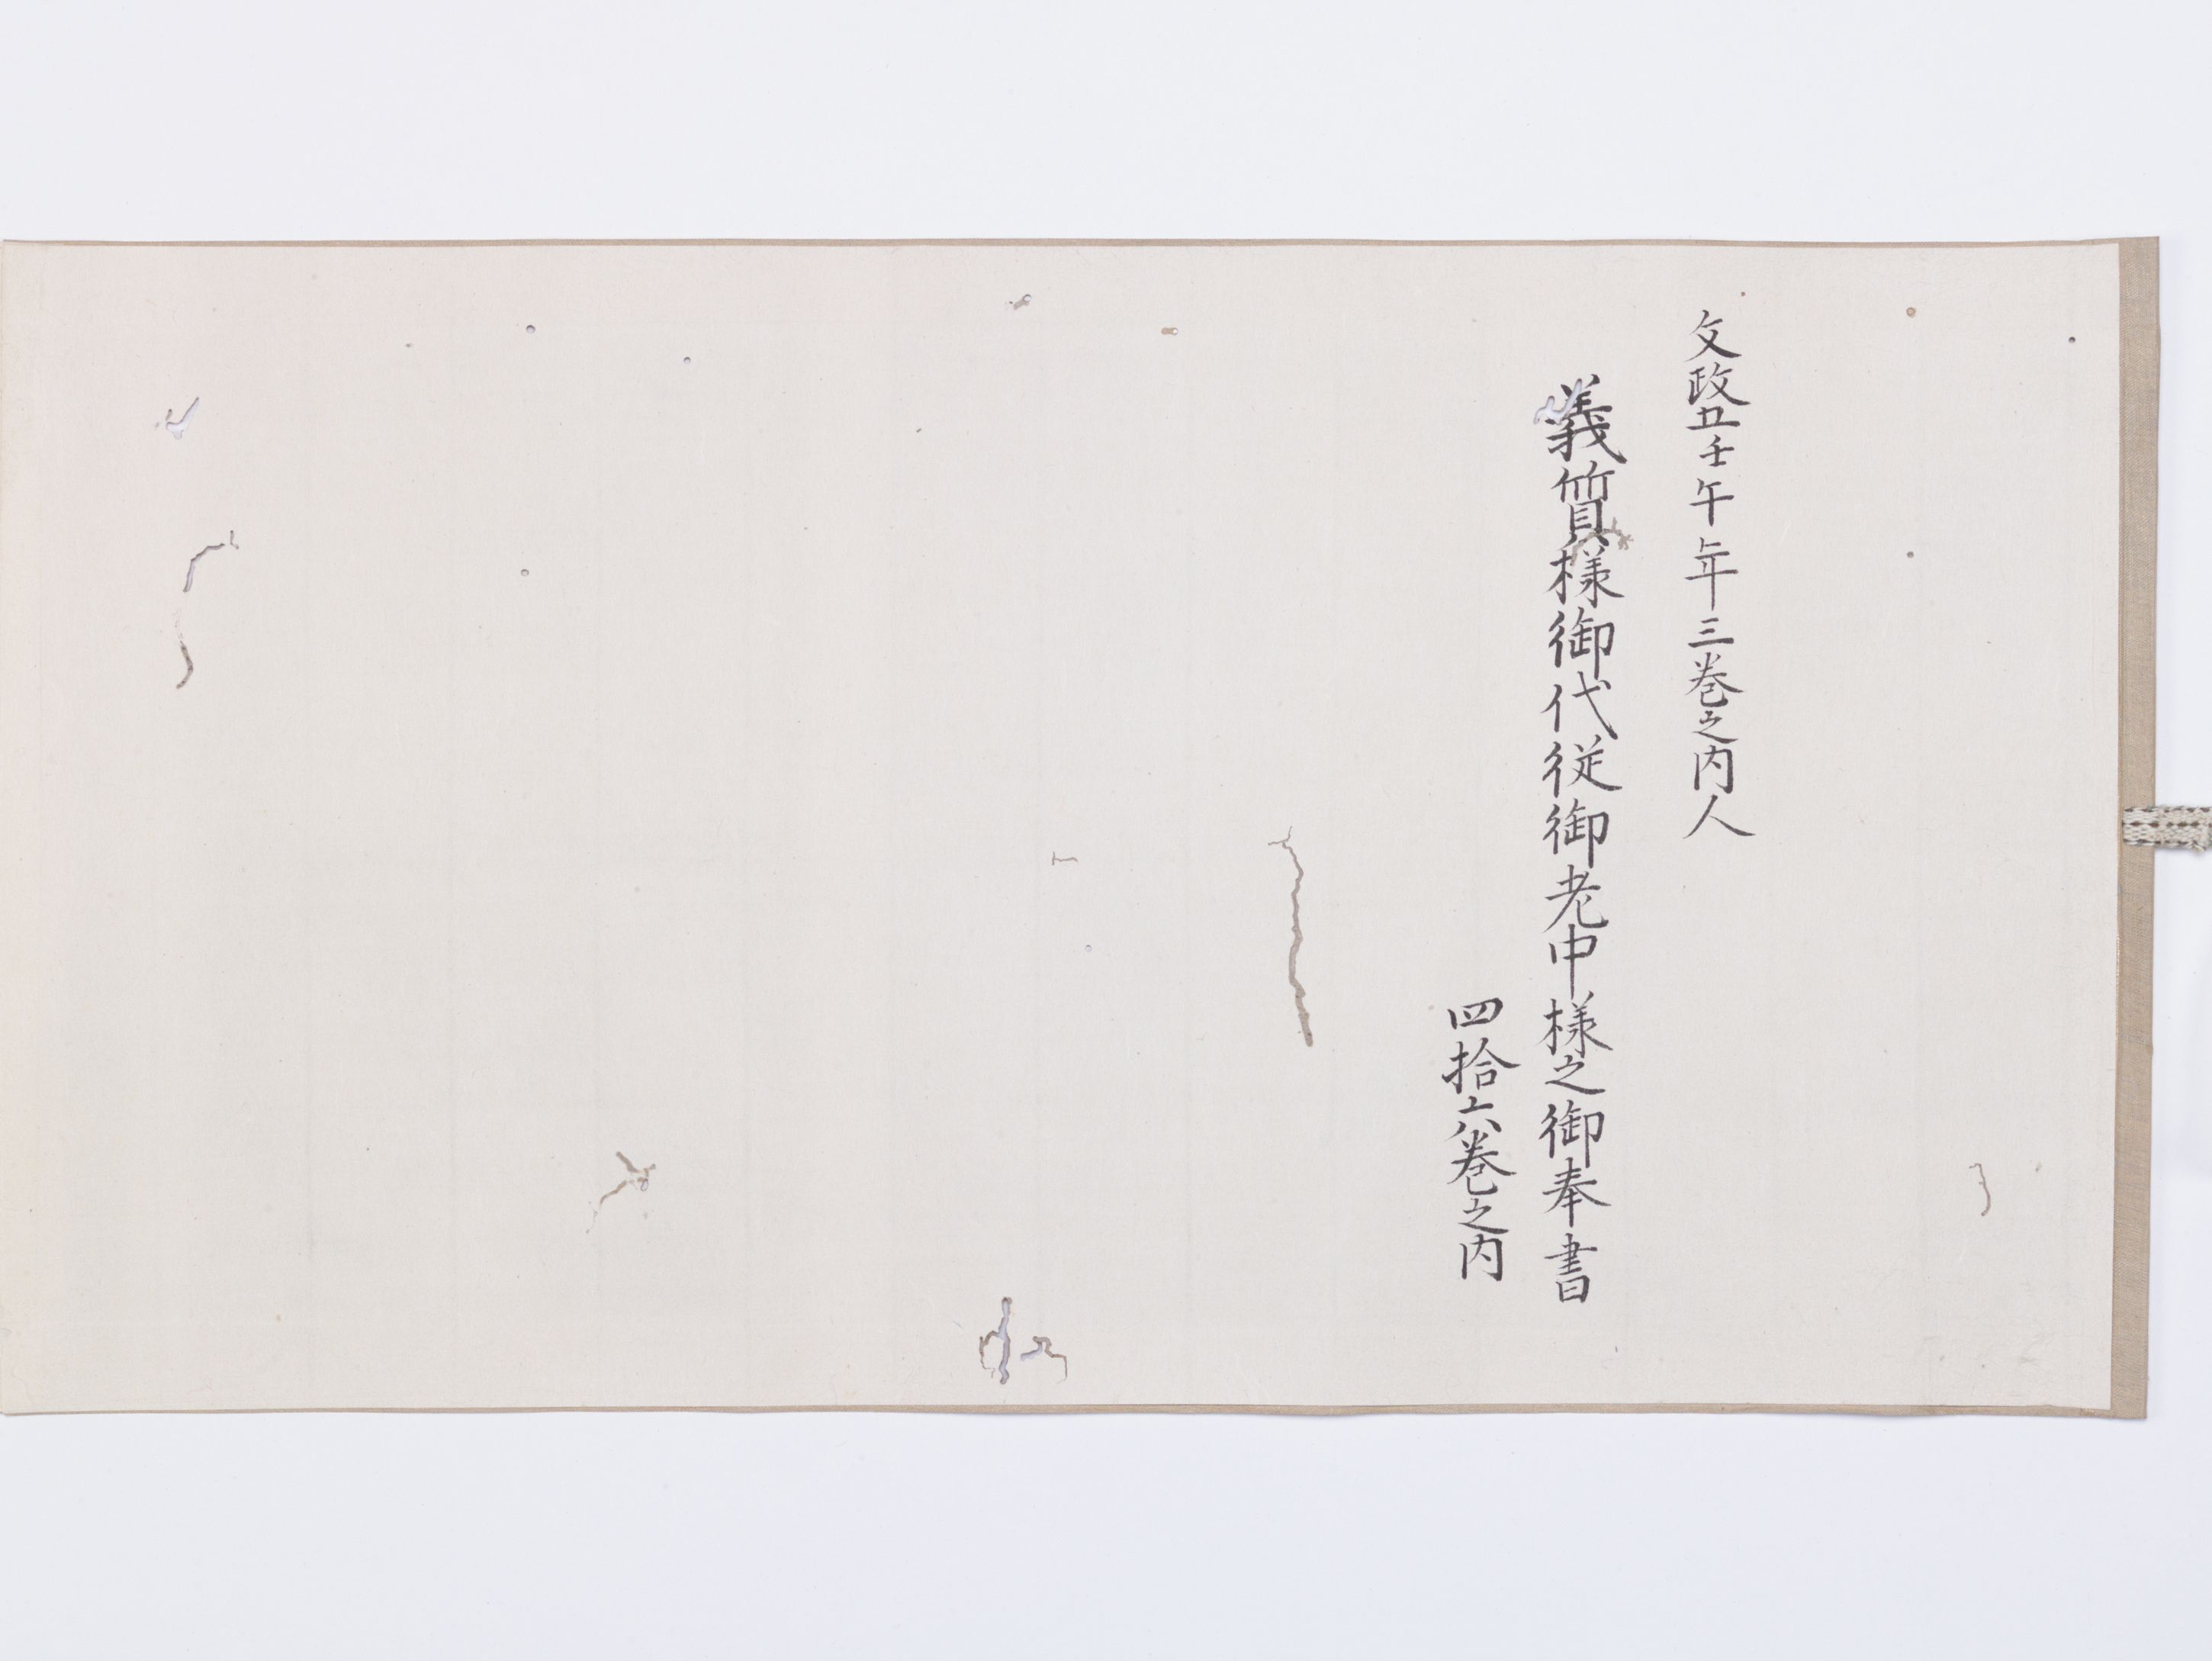 文政五壬午年三巻之内人
義質様御代従御老中様之御奉書
四拾六巻之内